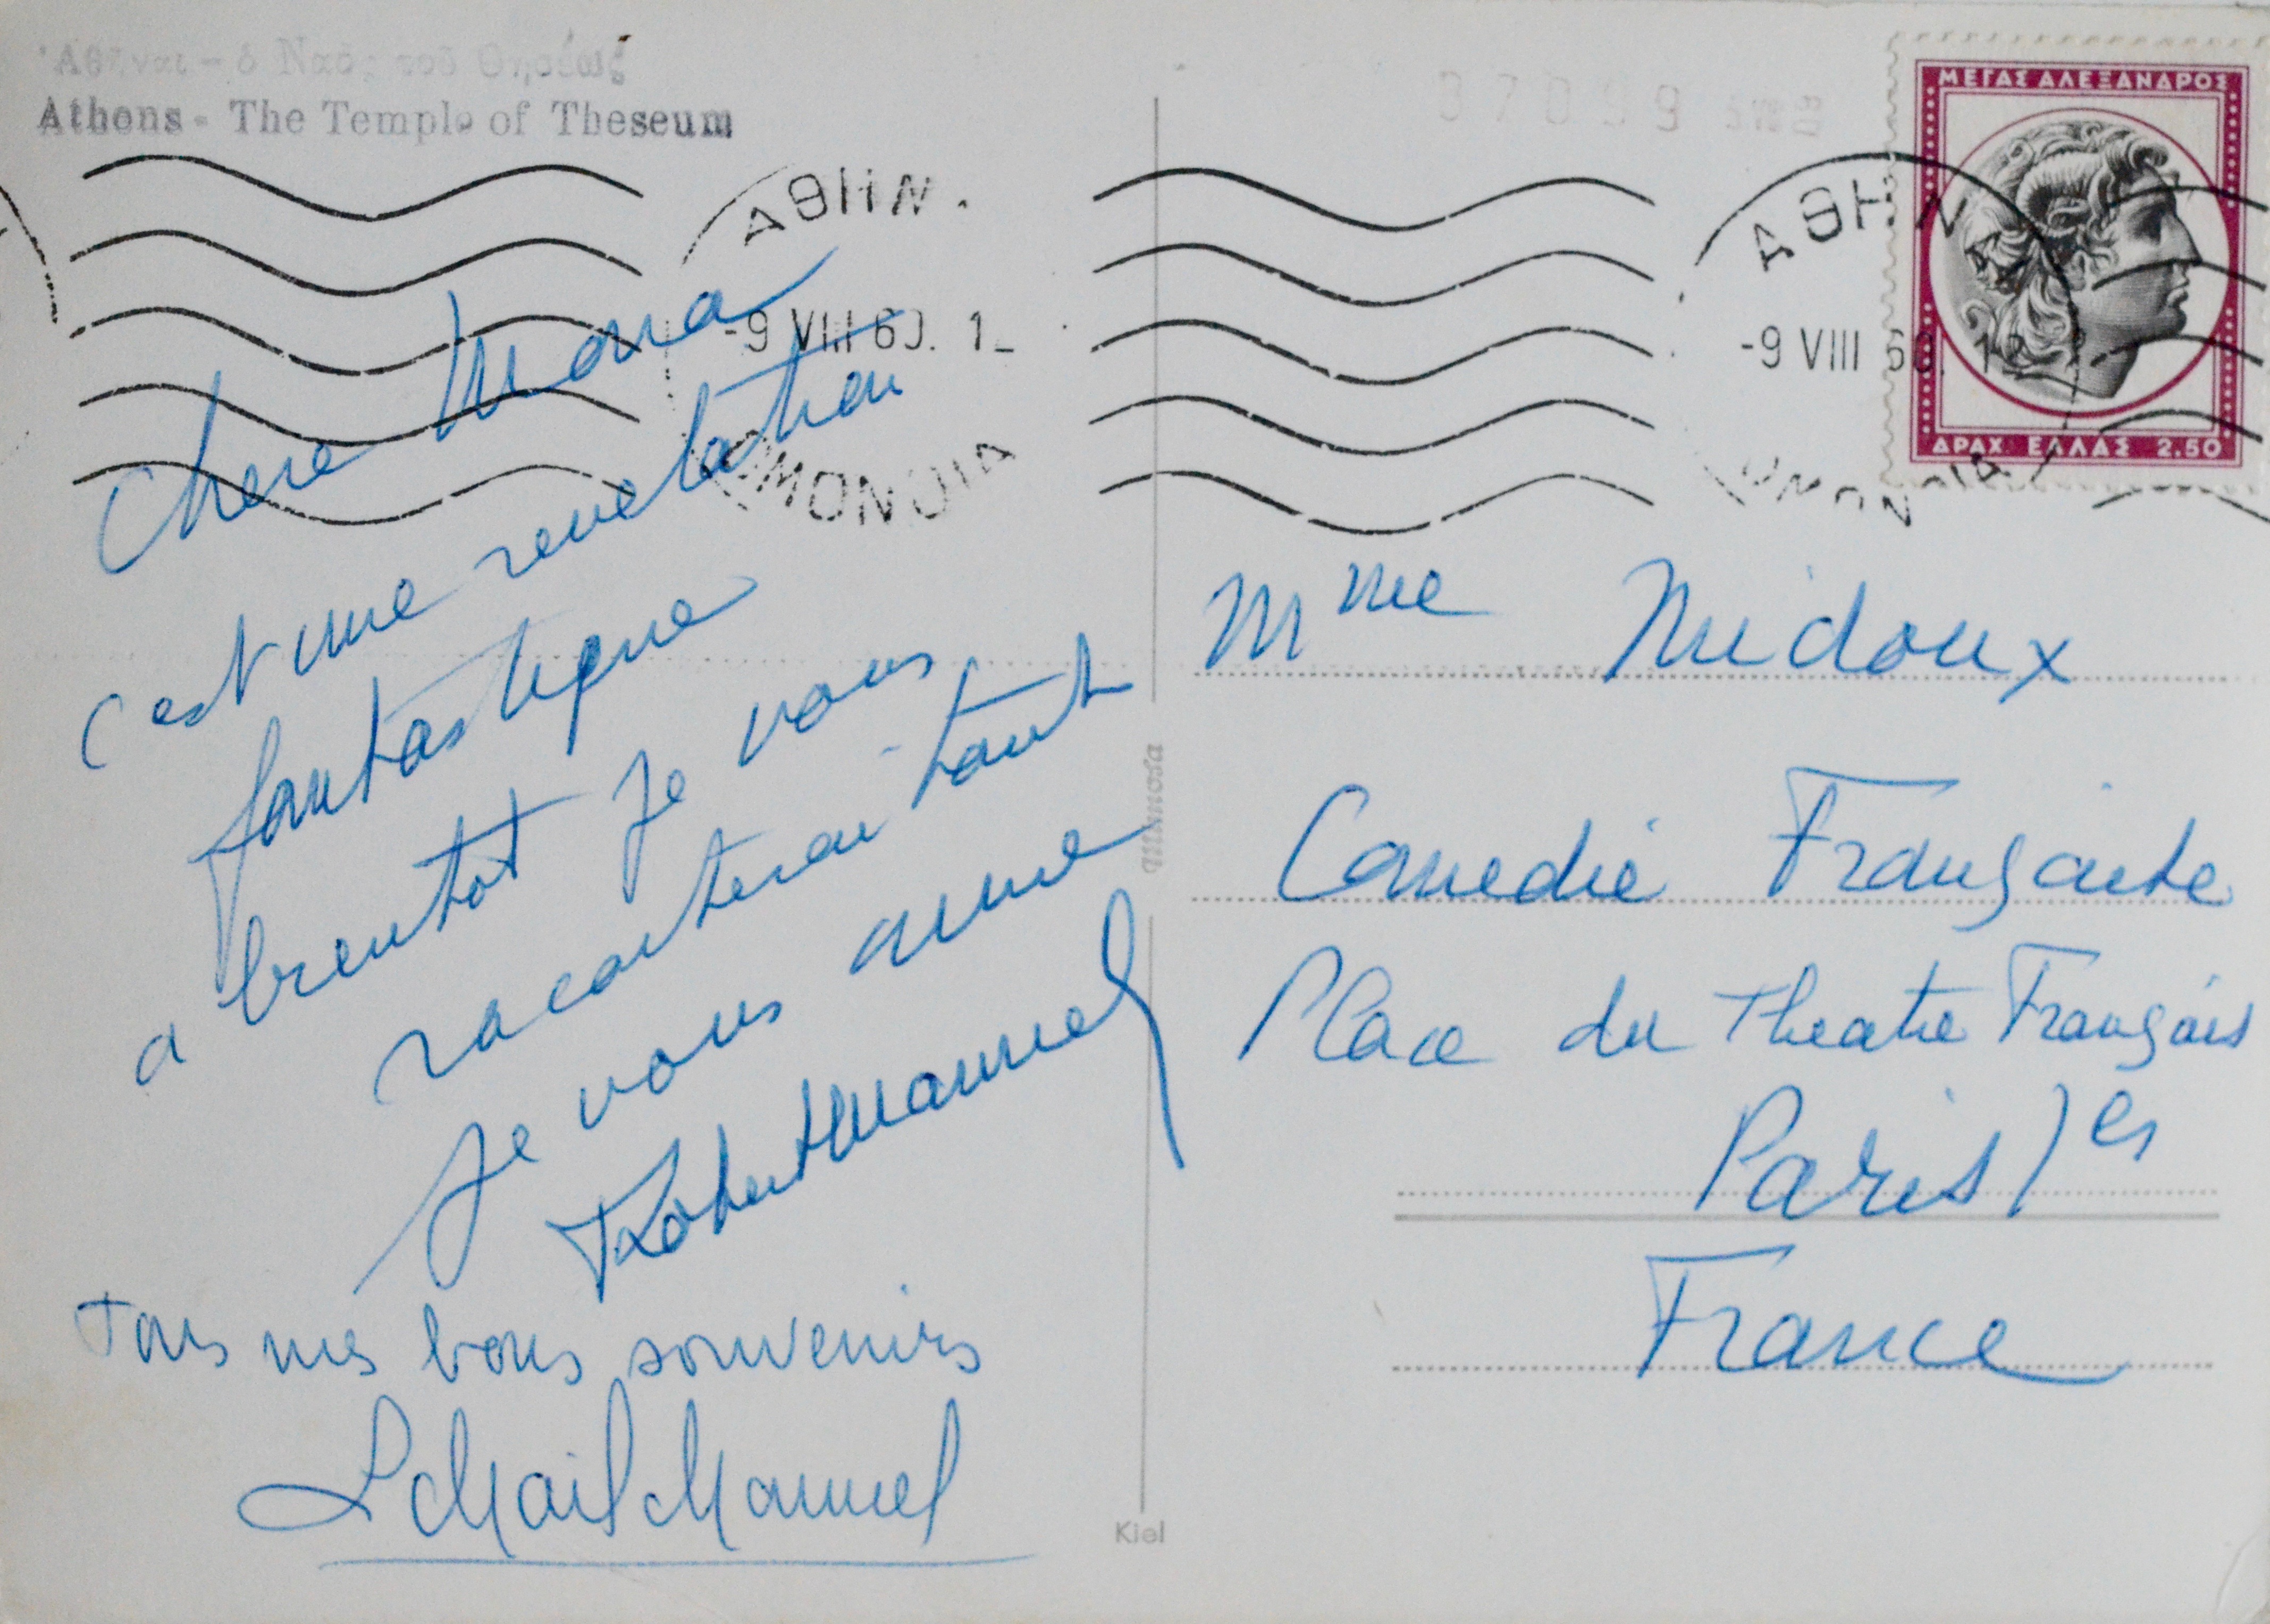 Ἀθῆναι - ὁ Ναός τοῦ Θησέως
Athens - The Temple of Theseum
ΑΘΗΝ.
-9 VIII 60. 1
ΟΜΟΝΟΙΑ
ΑΘΗΝ
-9 VIII 60. 12
ΟΜΟΝΟΙΑ
ΜΕΓΑΣ ΑΛΕΞΑΝΔΡΟΣ
ΔΡΑΧ ΕΛΛΑΣ 2.50
Chere Mona
c'est une revelation
fantastique
a bientot je vous
raconterai tout
Je vous aime
Robert Manuel
Tous mes bons souvenirs
Manuel
Kiel
Mme Midoux
Comedie Française
Place du Theatre Français
Paris 1er
France